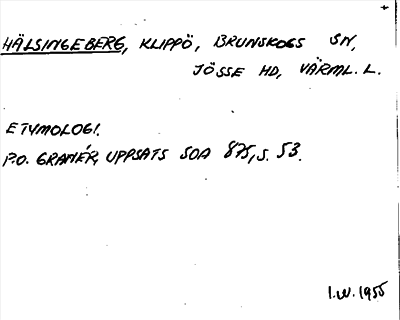 HÄLSINGEBERG, KLIPPÖ, BRUNSKOGS SN,
JÖSSE HD, VÄRML. L.
ETYMOLOGI.
P.O. GRANÉR, UPPSATS SOA 875, S. 53.
I.W. 1955